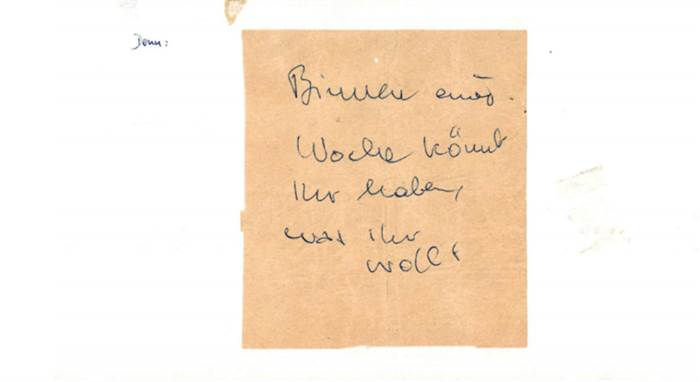 Denn:
Binnen einer
Woche könnt
Ihr haben,
was ihr
wollt